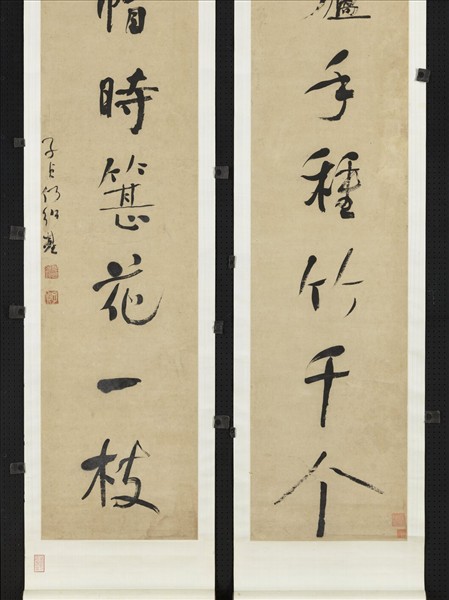 手種竹千个
帽時簪花一枝
子貞何紹基